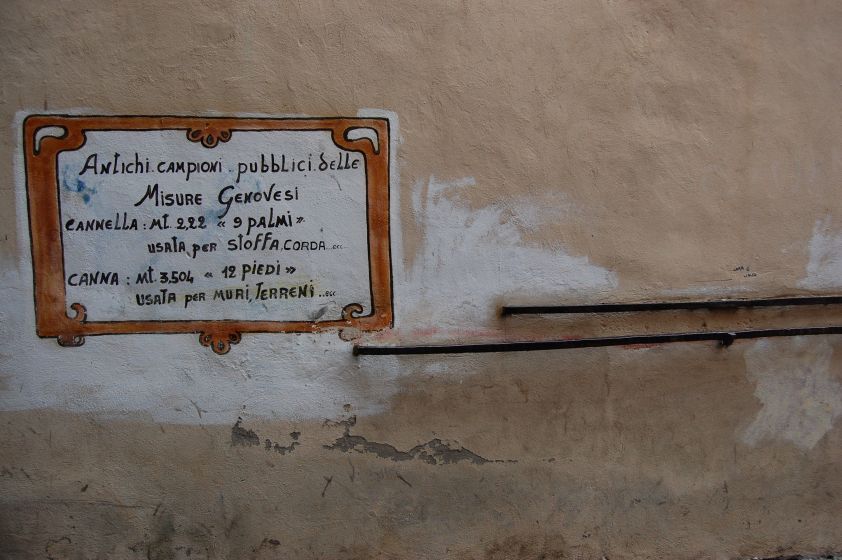 Antichi campioni pubblici delle
Misure Genovesi
Cannella: mt. 2,22 « 9 palmi»
usata per stoffa, corda...ecc...
Canna: mt. 3.504 « 12 piedi »
usata per muri, terreni...ecc